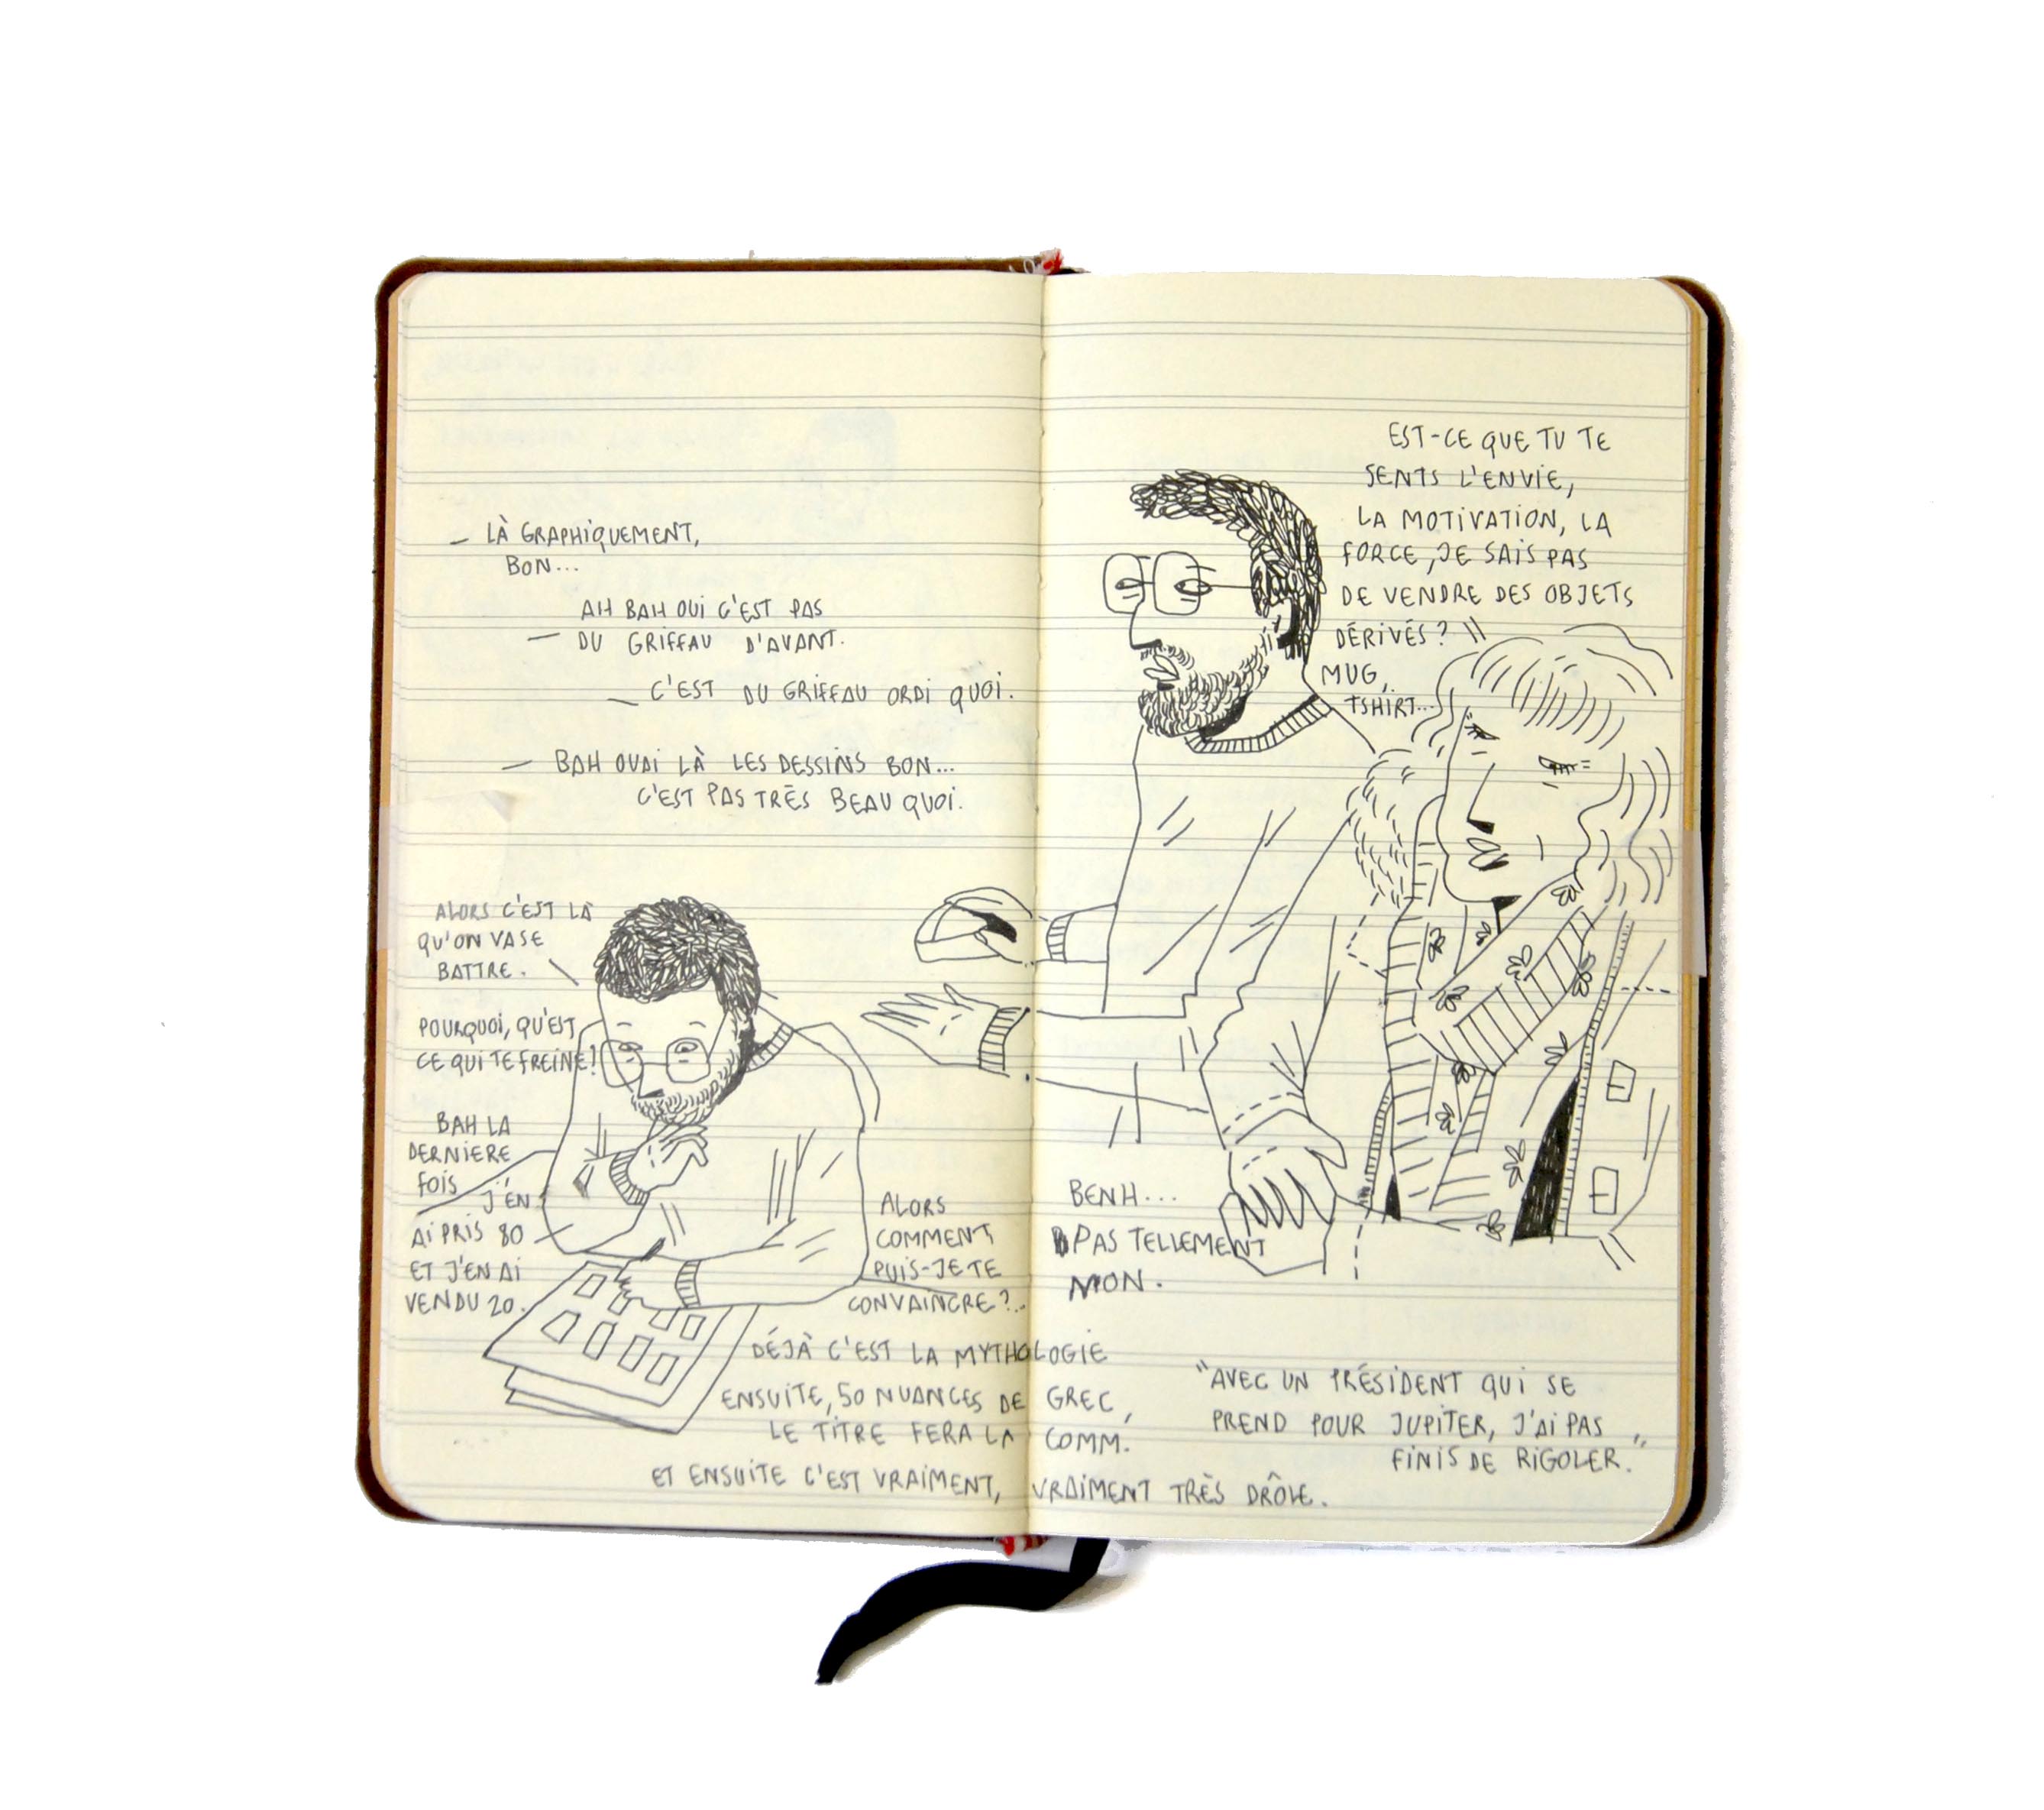 — LÀ GRAPHIQUEMENT,
BON...
AH BAH OUI C'EST PAS
— DU GRIFFAU D'AVANT.
— C'EST DU GRIFFAU ORDI QUOI.
— BAH OUAI LÀ LES DESSINS BON...
C'EST PAS TRÈS BEAU QUOI.
ALORS C'EST LÀ
QU'ON VA SE
BATTRE.
POURQUOI, QU'EST
CE QUI TE FREINE!
BAH LA
DERNIERE
FOIS J'EN
AI PRIS 80
ET J'EN AI
VENDU 20.
ALORS
COMMENT
PUIS-JE TE
CONVAINCRE?..
DÉJÀ C'EST LA MYTHOLOGIE
ENSUITE, 50 NUANCES DE GREC,
LE TITRE FERA LA COMM.
ET ENSUITE C'EST VRAIMENT, VRAIMENT TRÈS DRÔLE.
EST-CE QUE TU TE
SENTS L'ENVIE,
LA MOTIVATION, LA
FORCE, JE SAIS PAS
DE VENDRE DES OBJETS
DÉRIVÉS?
MUG,
TSHIRT...
BENH...
PAS TELLEMENT
NON.
"AVEC UN PRÉSIDENT QUI SE
PREND POUR JUPITER, J'AI PAS
FINIS DE RIGOLER."